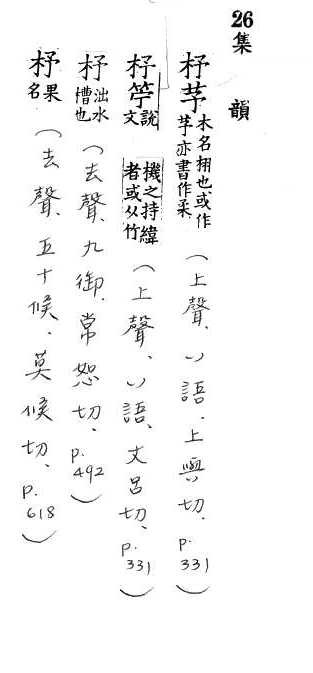 26集 韻
杼芧木名栩也或作芧亦書作柔(上聲、八語、上與切、p.331)
杼竽說文機之持緯者或从竹(上聲、八語、丈呂切、p.331)
杼泏水槽也(去聲、九御、常恕切、p.492)
杼果名(去聲、五十候、莫候切、p.618)